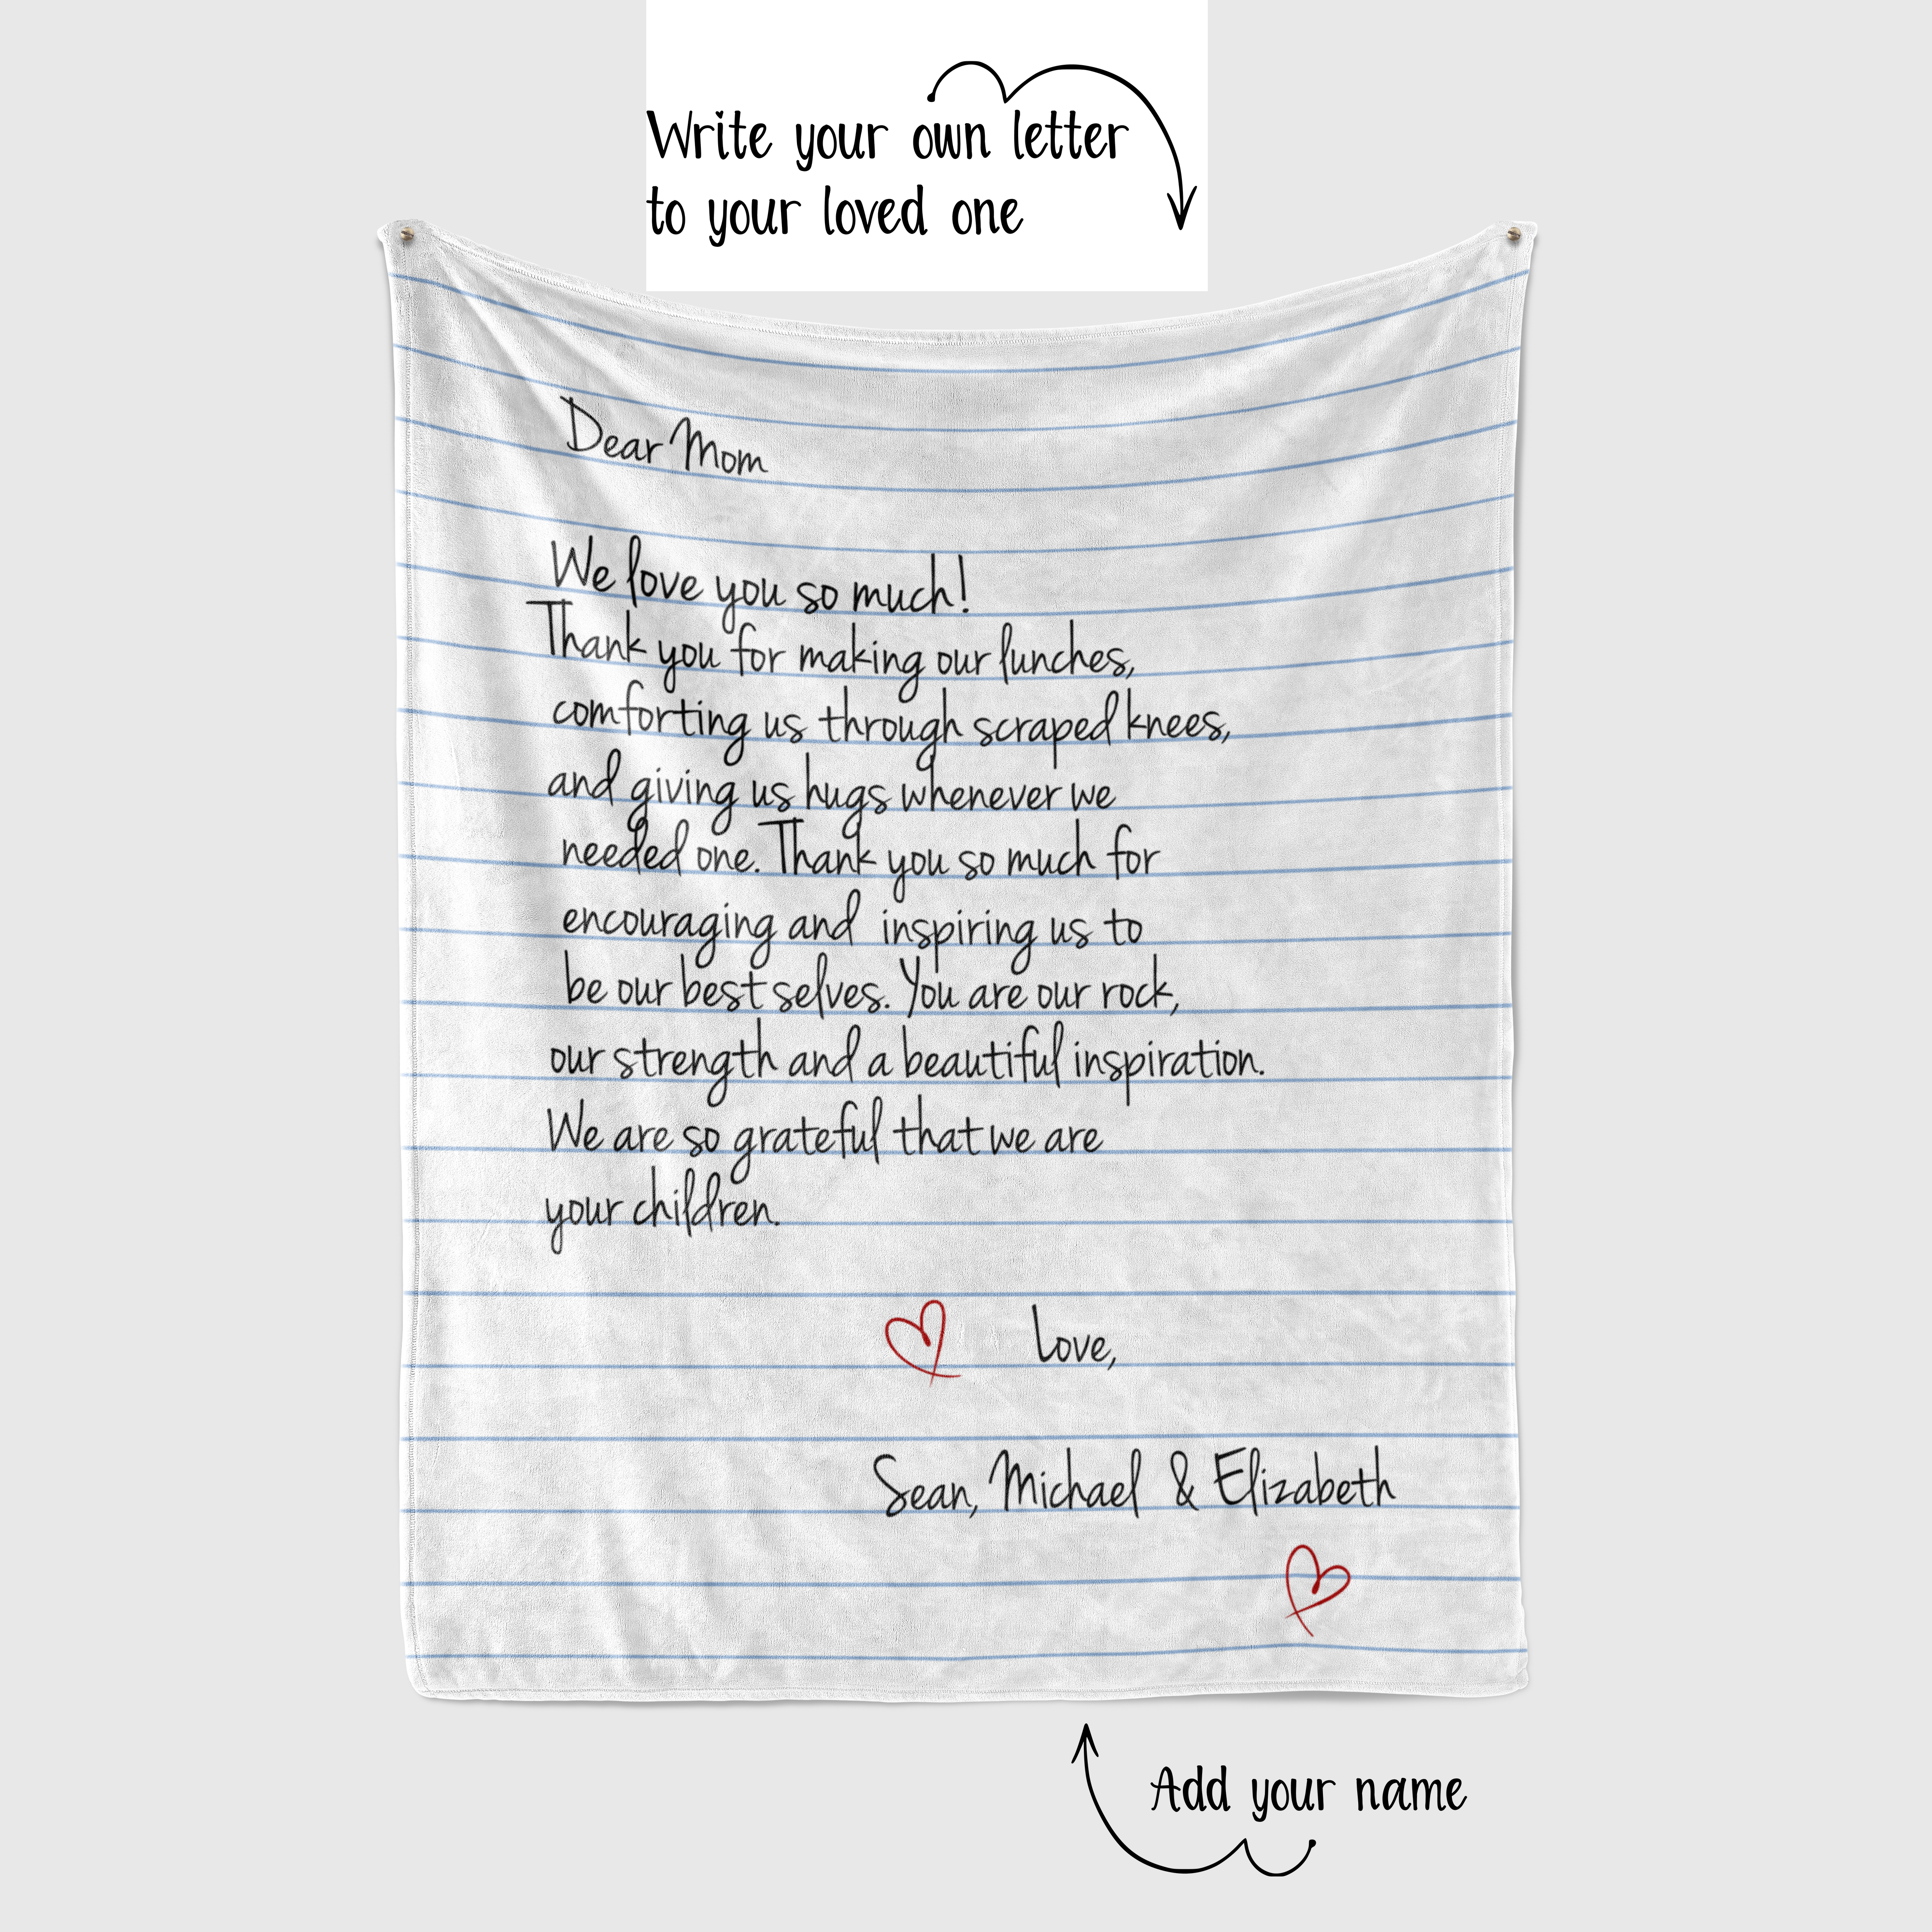 Write your own letter
to your loved one
Dear Mom
We love you so much!
Thank you for making our lunches,
comforting us through scraped knees,
and giving us hugs whenever we
needed one. Thank you so much for
encouraging and inspiring us to
be our best selves. You are our rock,
our strength and a beautiful inspiration.
We are so grateful that we are
your children.
Love,
Sean, Michael & Elizabeth
Add your name